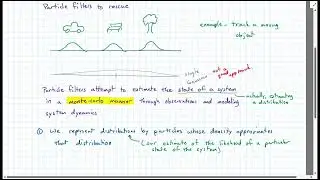 Particle filters to rescue
example - track a moving
object
single
Gaussian
not a
good approach
Particle filters attempt to estimate the state of a system
in a monte-carlo manner through observations and modeling
system dynamics
actually, estimating
a distribution
① We represent distributions by particles whose density approximates
that distribution (our estimate of the likelihood of a particular
state of the system)